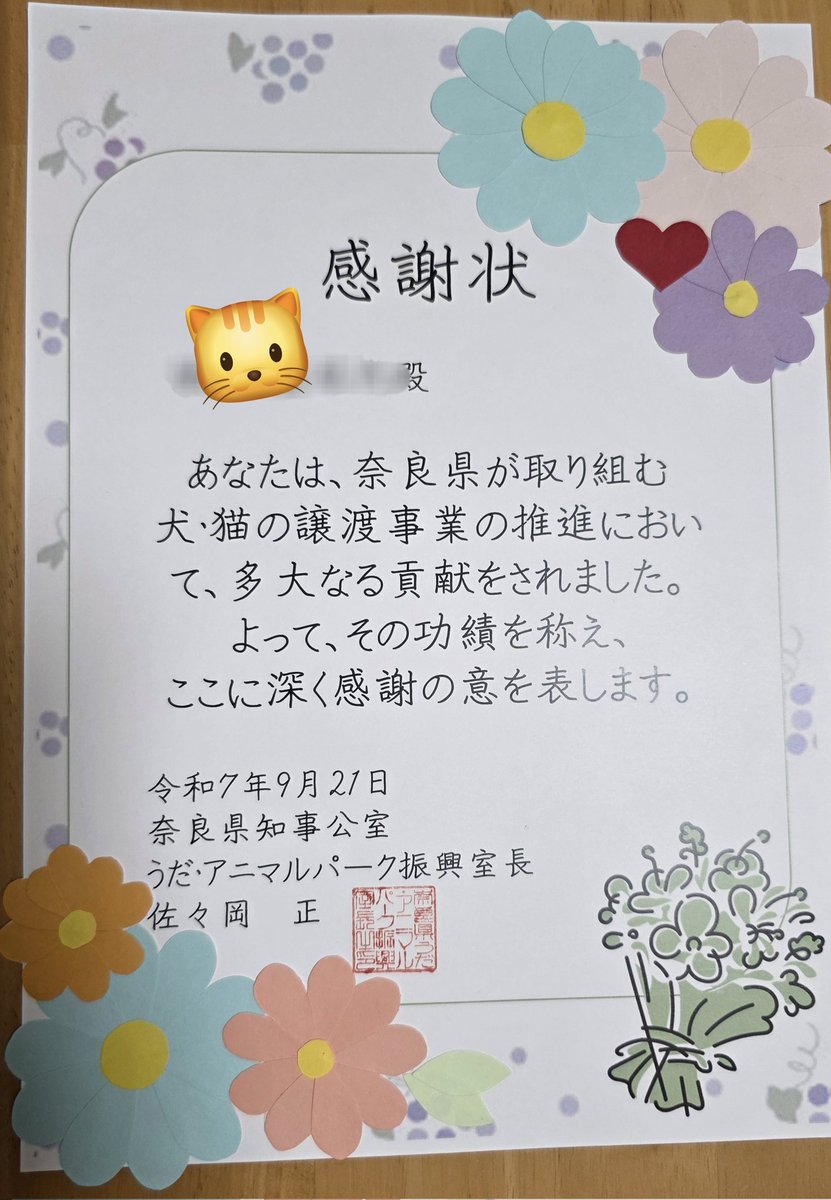 感謝状
殿
あなたは、奈良県が取り組む
犬・猫の譲渡事業の推進におい
て、多大なる貢献をされました。
よって、その功績を称え、
ここに深く感謝の意を表します。
令和7年9月21日
奈良県知事公室
うだ・アニマルパーク振興室長
佐々岡 正